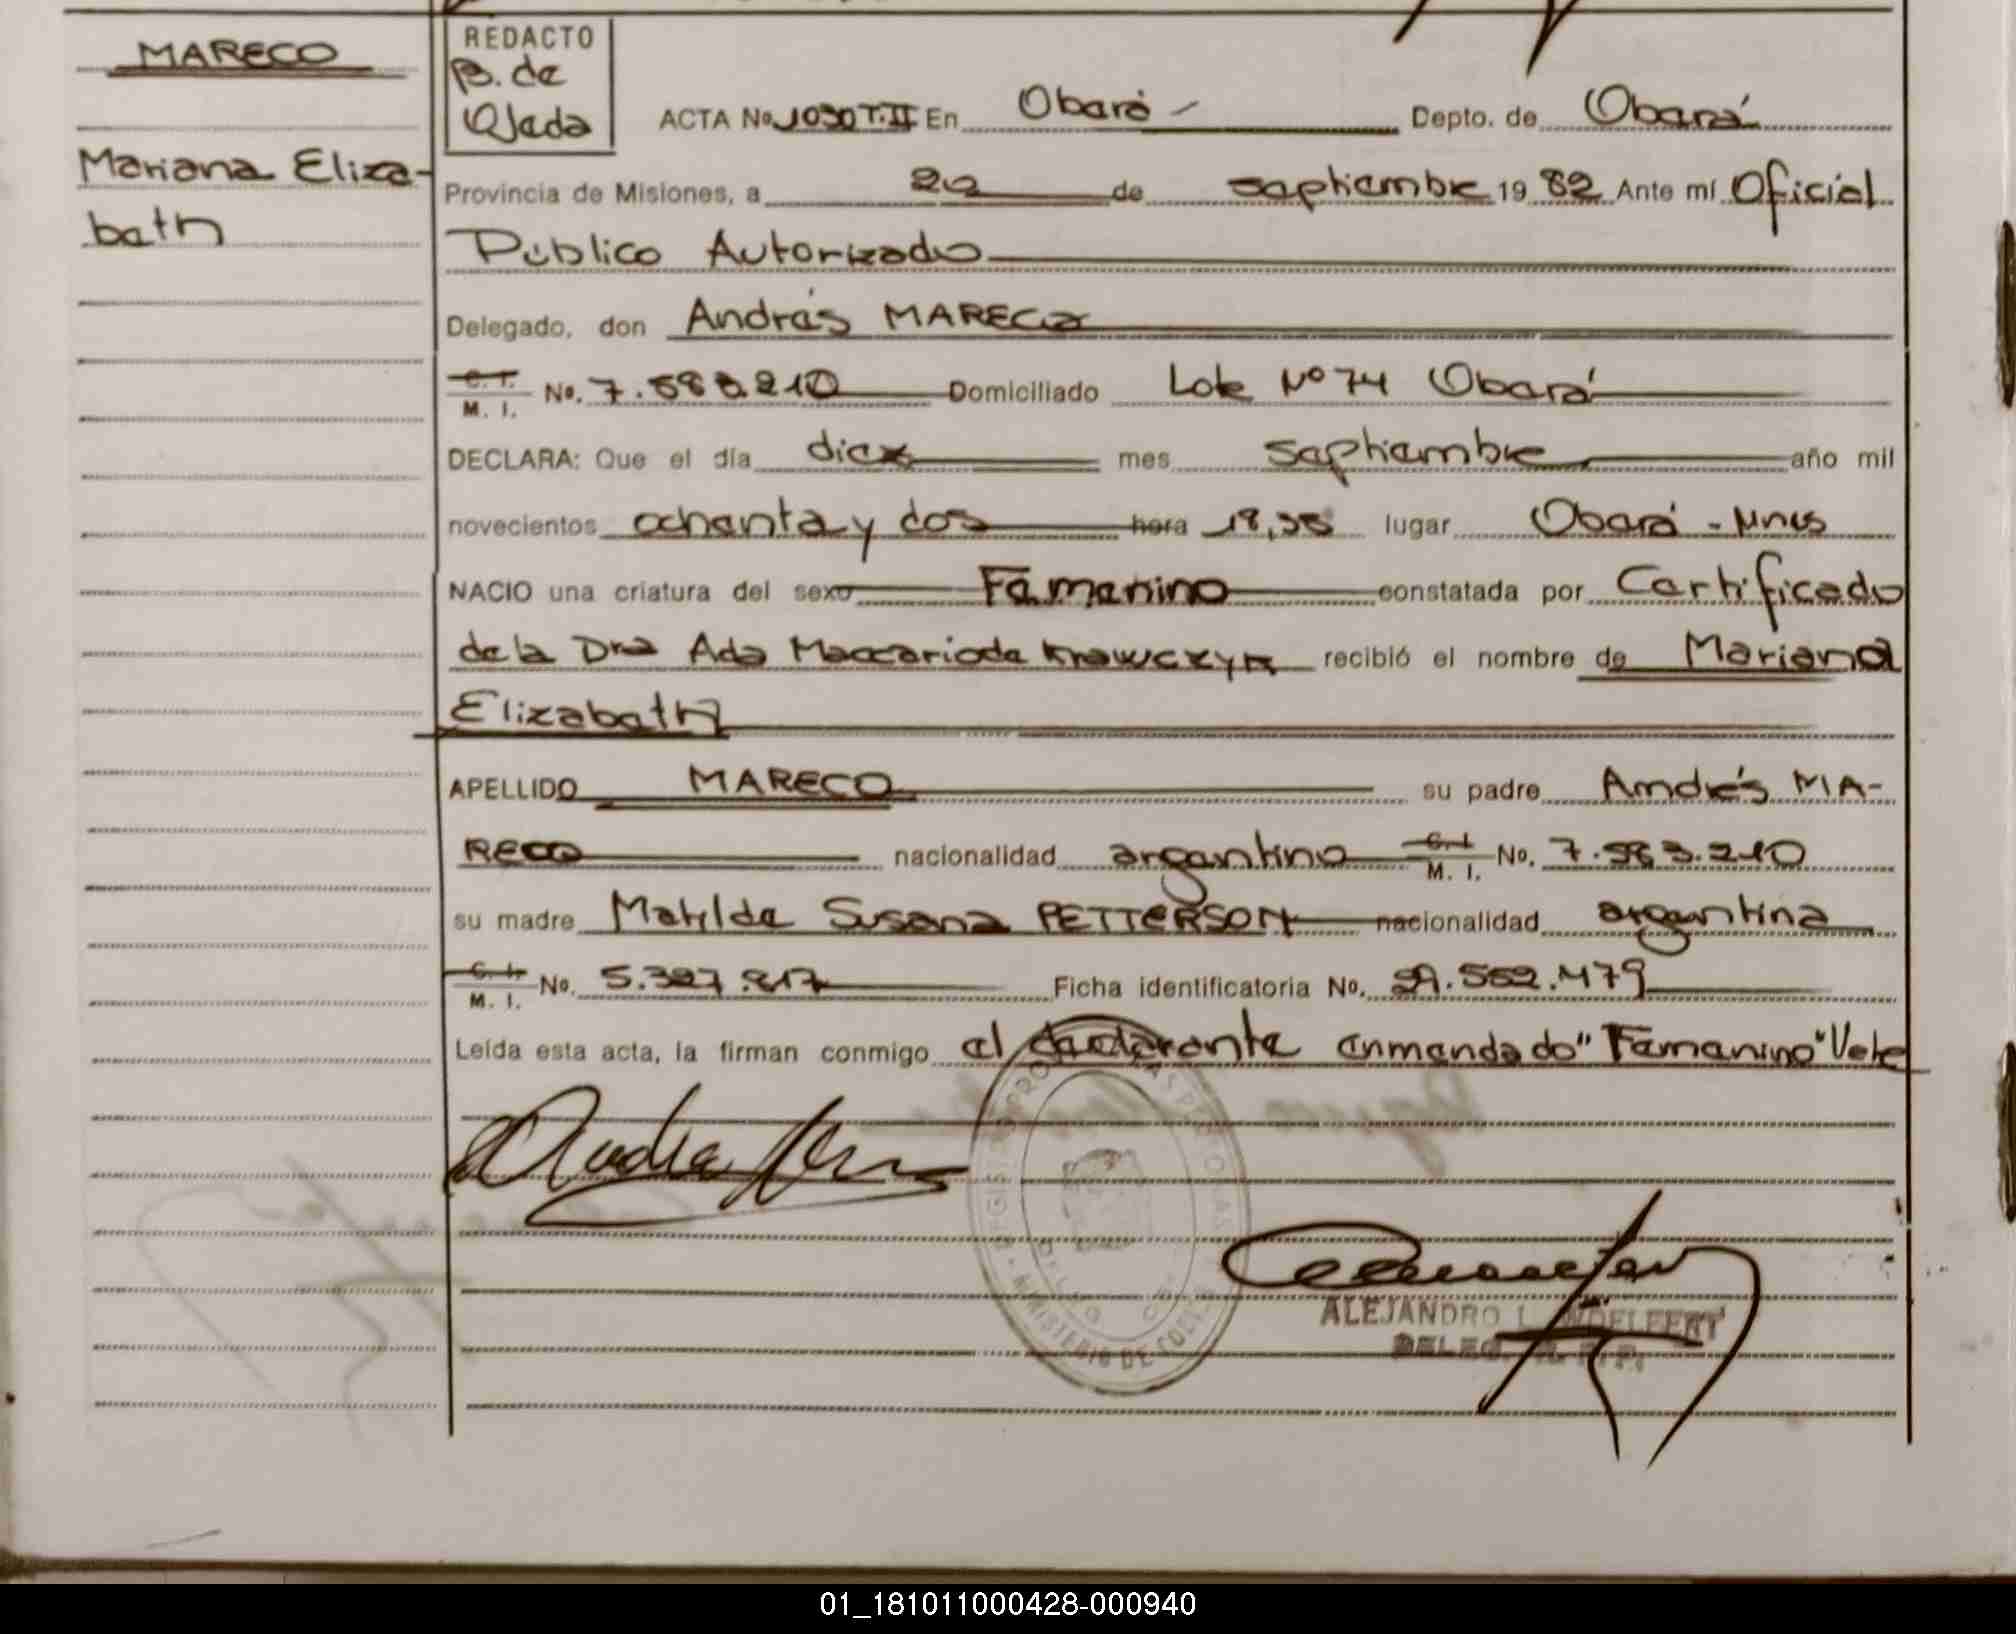 MARECO
Mariana Eliza-
beth
REDACTO
B. de
Ojeda
ACTA No. 1030 T.II En Oberá Depto. de Oberá
Provincia de Misiones, a 20 de septiembre 1982 Ante mí Oficial
Público Autorizado
Delegado, don Andrés MARECO
C. I. M. I. No. 7.583.210 Domiciliado Lote Nº 74 Oberá
DECLARA: Que el día diez mes septiembre año mil
novecientos ochenta y dos hora 18,35 lugar Oberá - Mnes
NACIO una criatura del sexo Femenino constatada por Certificado
de la Dra Ada Maccario de Krawczyk recibió el nombre de Mariana
Elizabeth
APELLIDO MARECO su padre Andrés MA-
RECO nacionalidad argentino C. I. M. I. No. 7.583.210
su madre Matilde Susana PETTERSON nacionalidad argentina
C. I. M. I. No. 5.327.817 Ficha identificatoria No. 29.552.479
Leída esta acta, la firman conmigo el declarante enmendado "Femenino" Vale
MINISTERIO DE
ALEJANDRO L. WOELFERT
DELEG. R. P. P.
01_181011000428-000940